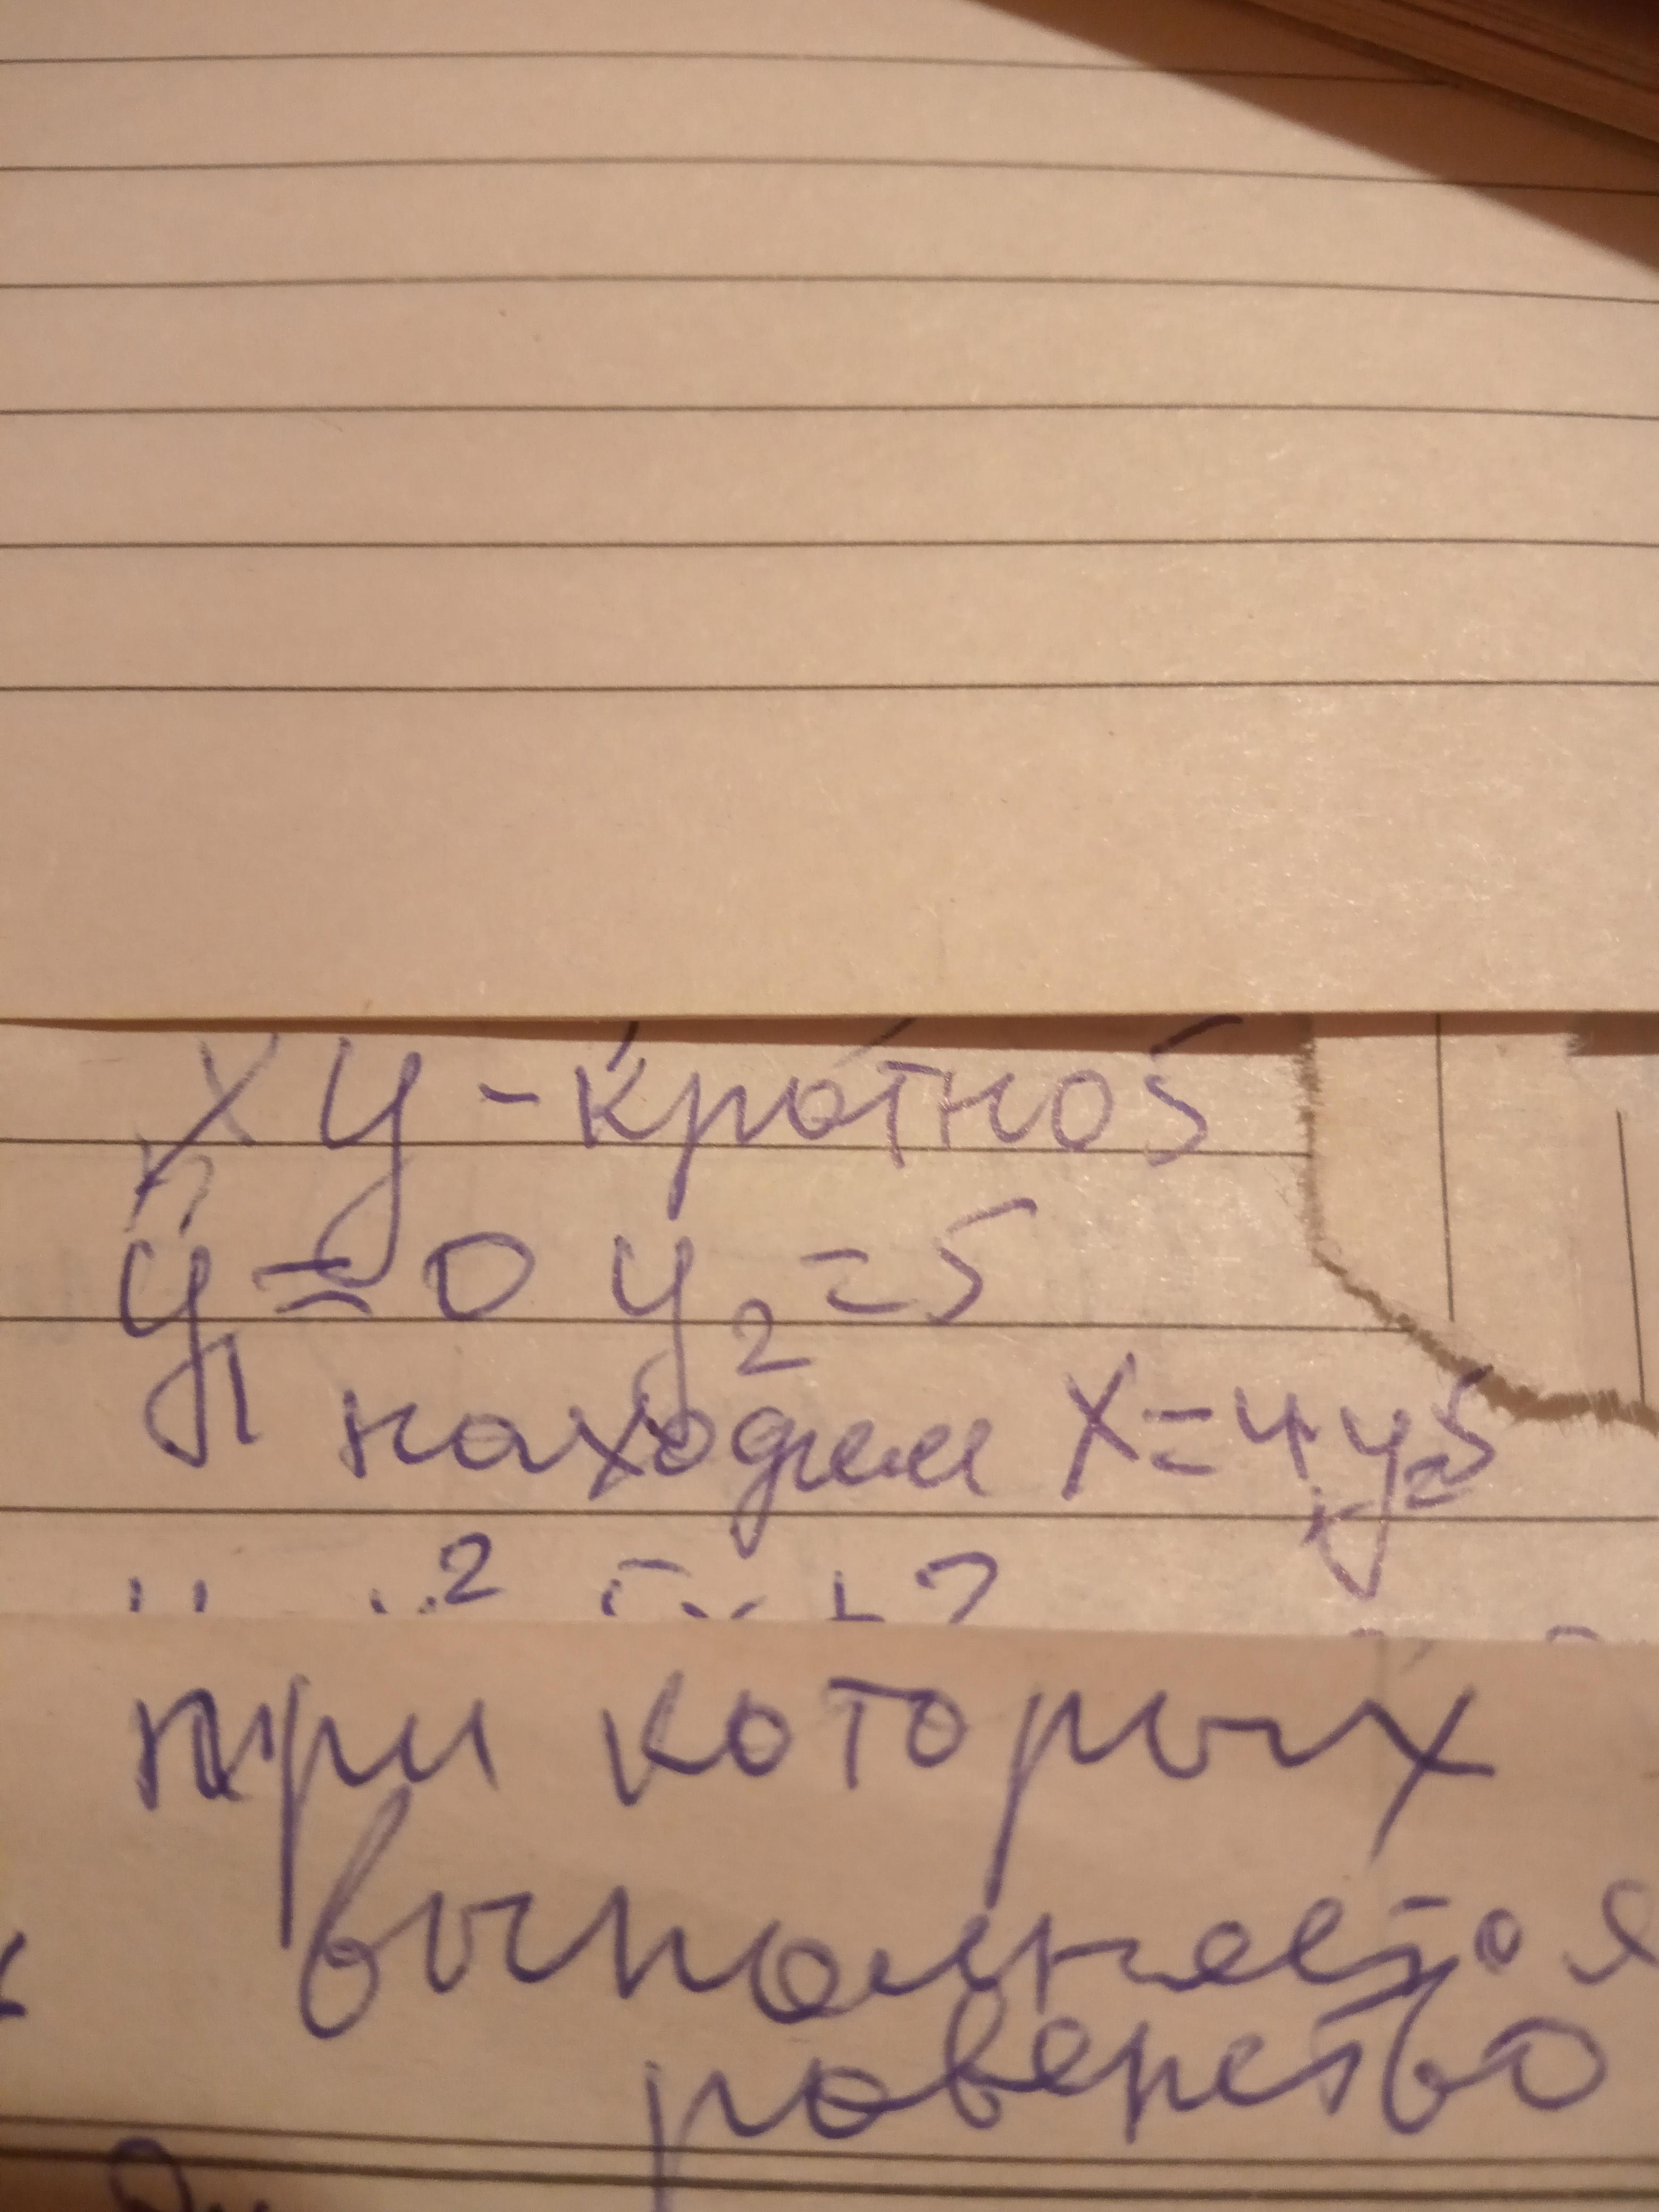 xy - кратно 5
y₁ = 0 y₂ = 5
находим x = 4 y = 5
при которых
выполняется
равенство